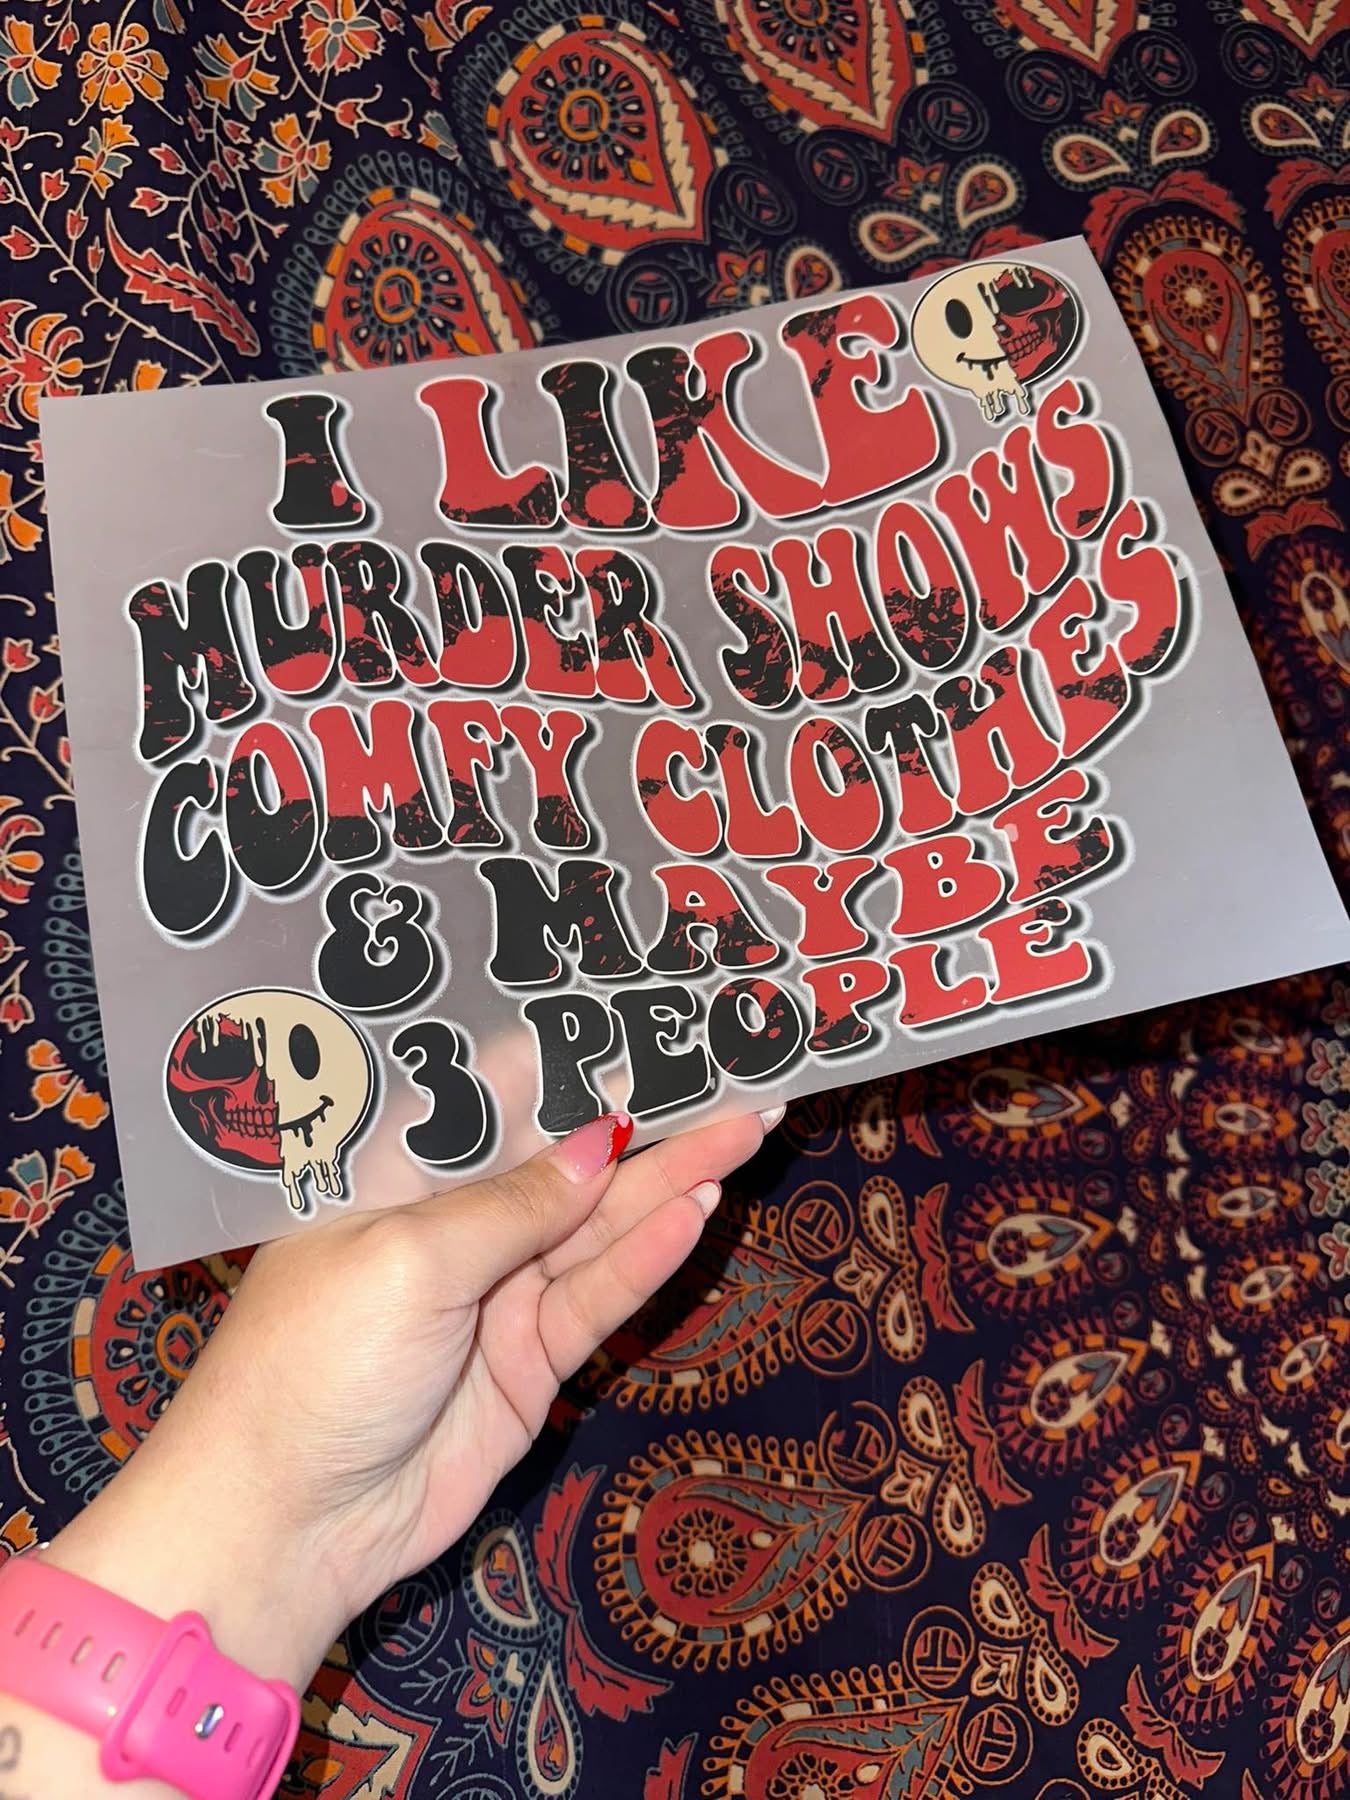 I LIKE
MURDER SHOWS
COMFY CLOTHES
& MAYBE
3 PEOPLE